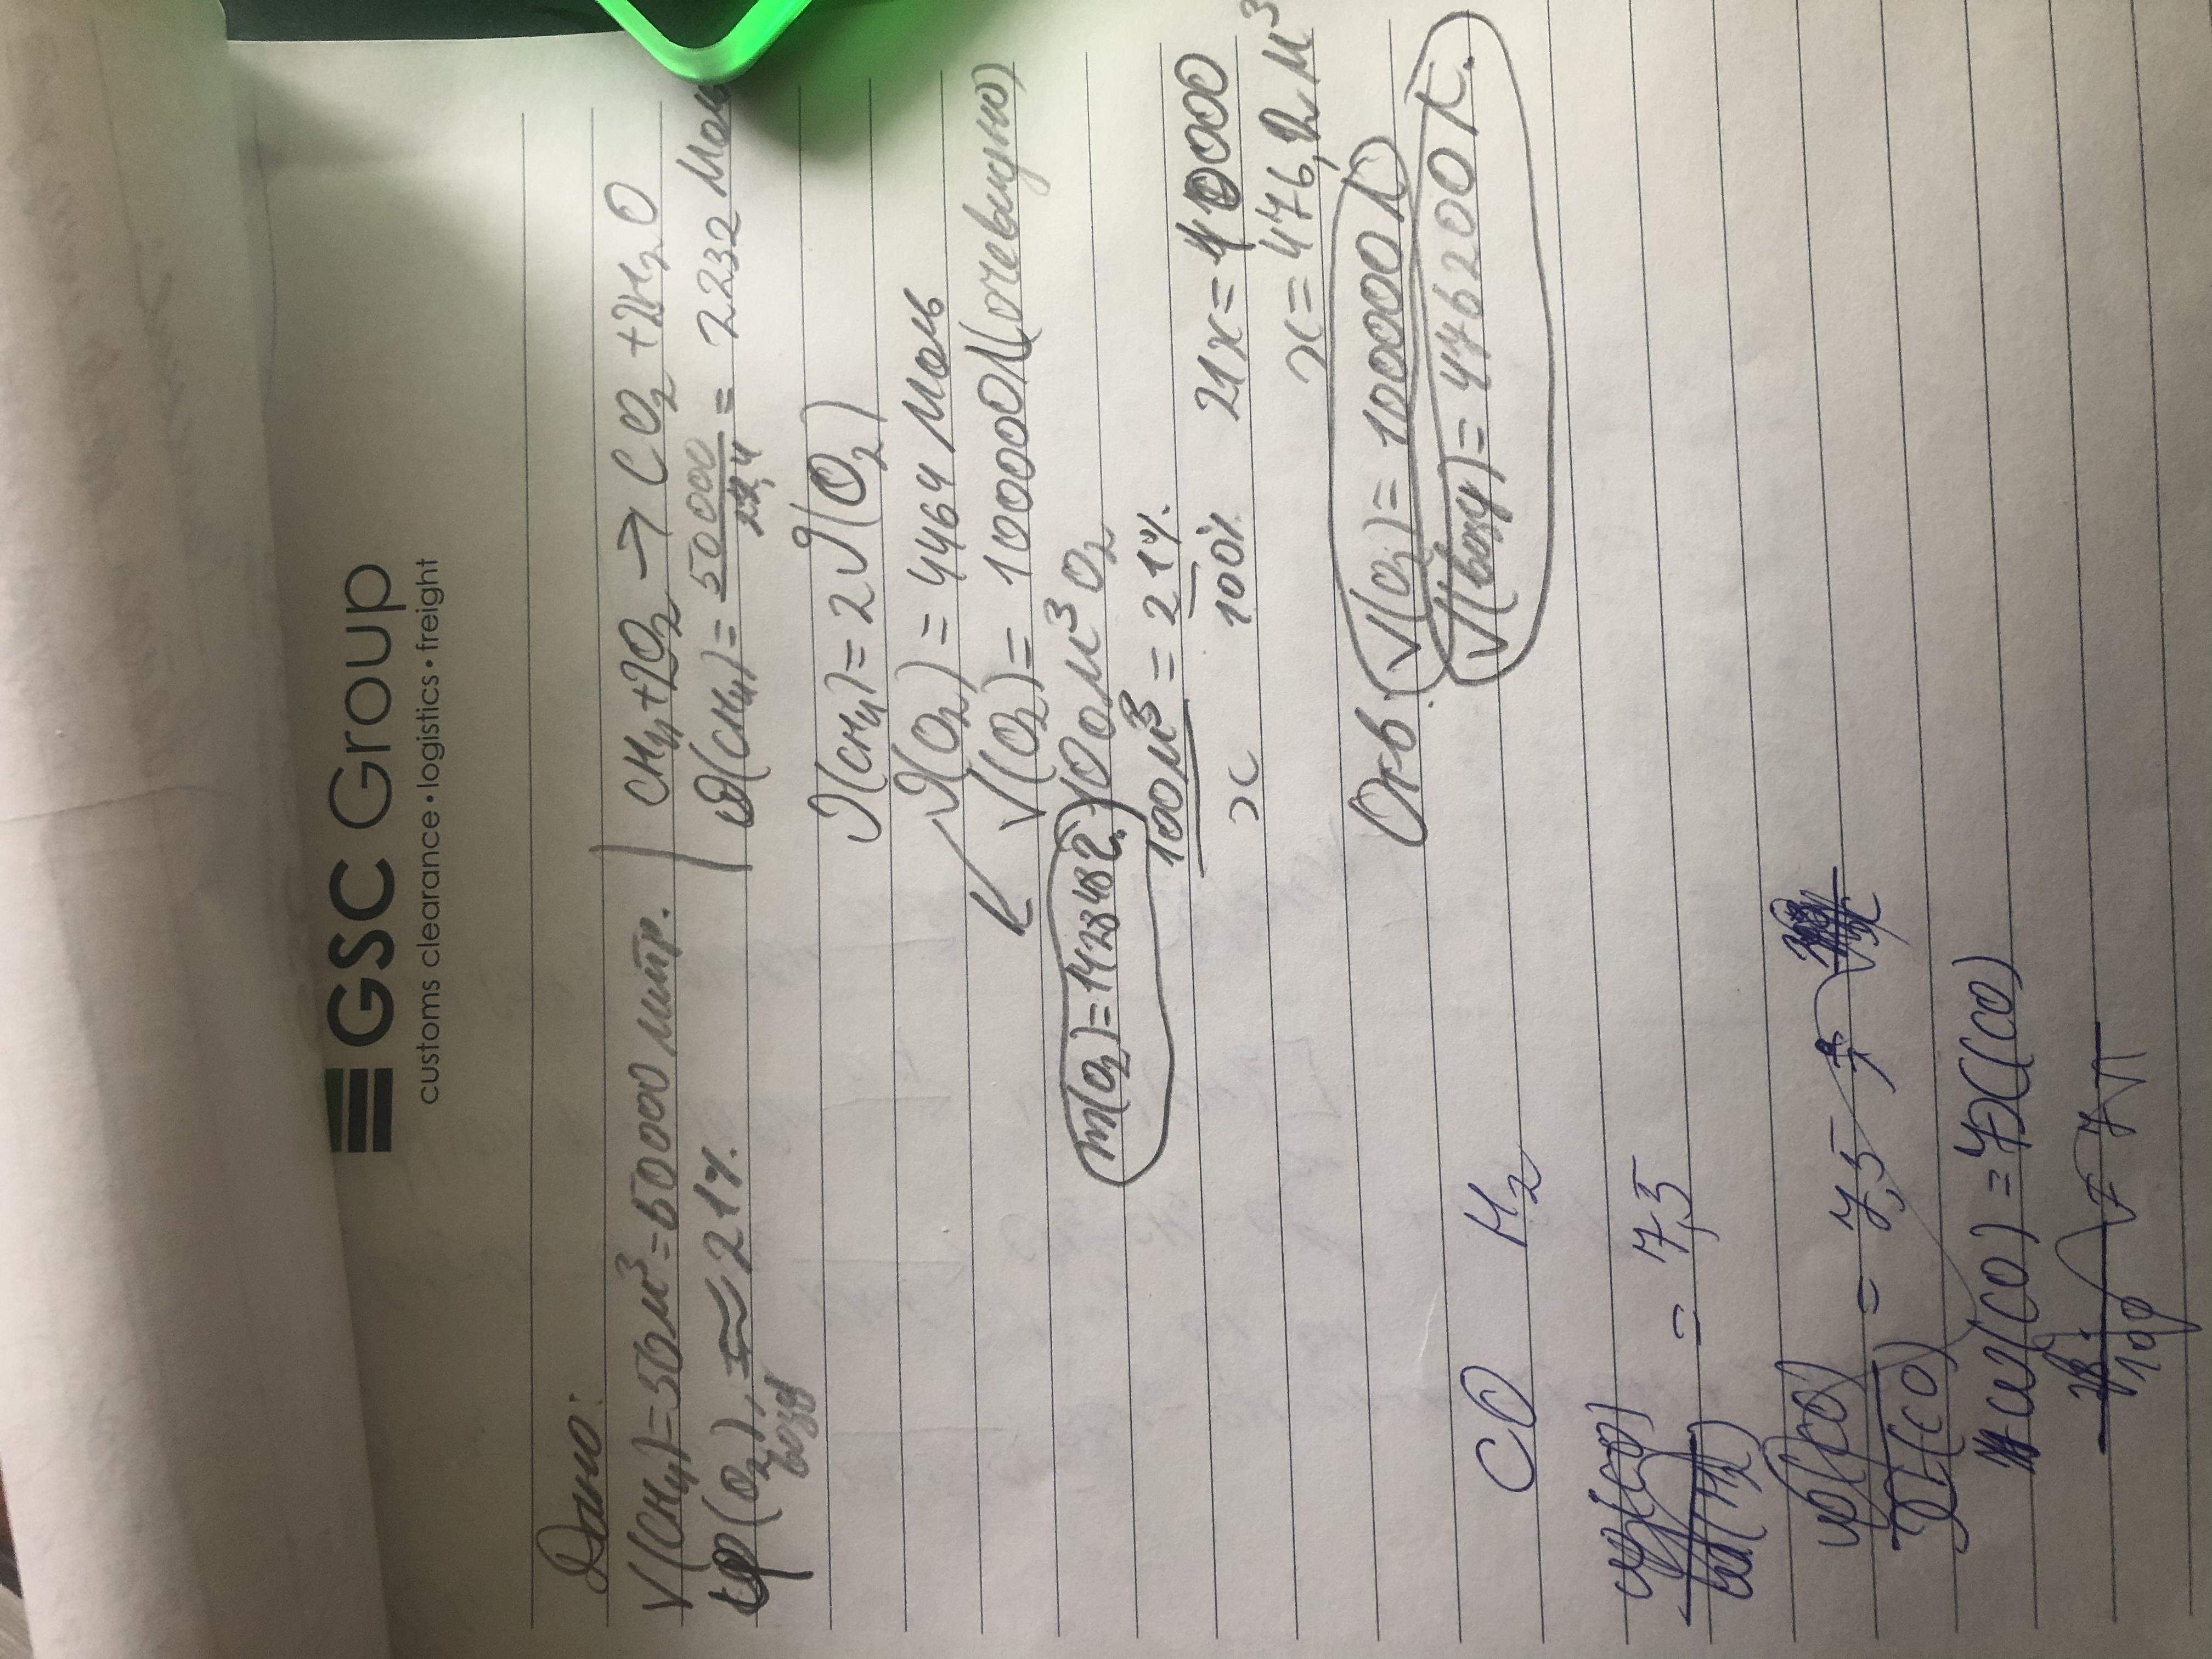 GSC Group
customs clearance • logistics • freight
Дано:
V(CH₄)=50м³=50000 литр.
φ(O₂)возд ≈ 21%.
CH₄+2O₂ → CO₂ +2H₂O
ϑ(CH₄)= 50000/22,4 = 2232 моль
ϑ(CH₄)=2ϑ(O₂)
ϑ(O₂) = 4464 моль
V(O₂)= 100000л(очевидно)
m(O₂)=142848г.
100м³ O₂
100м³ = 21%.
x 100%
21x=10000
x=476,2м³
Отв. V(O₂)=100000л
V(возд)=476200л.
CO H₂
= 7,5
= 7,5